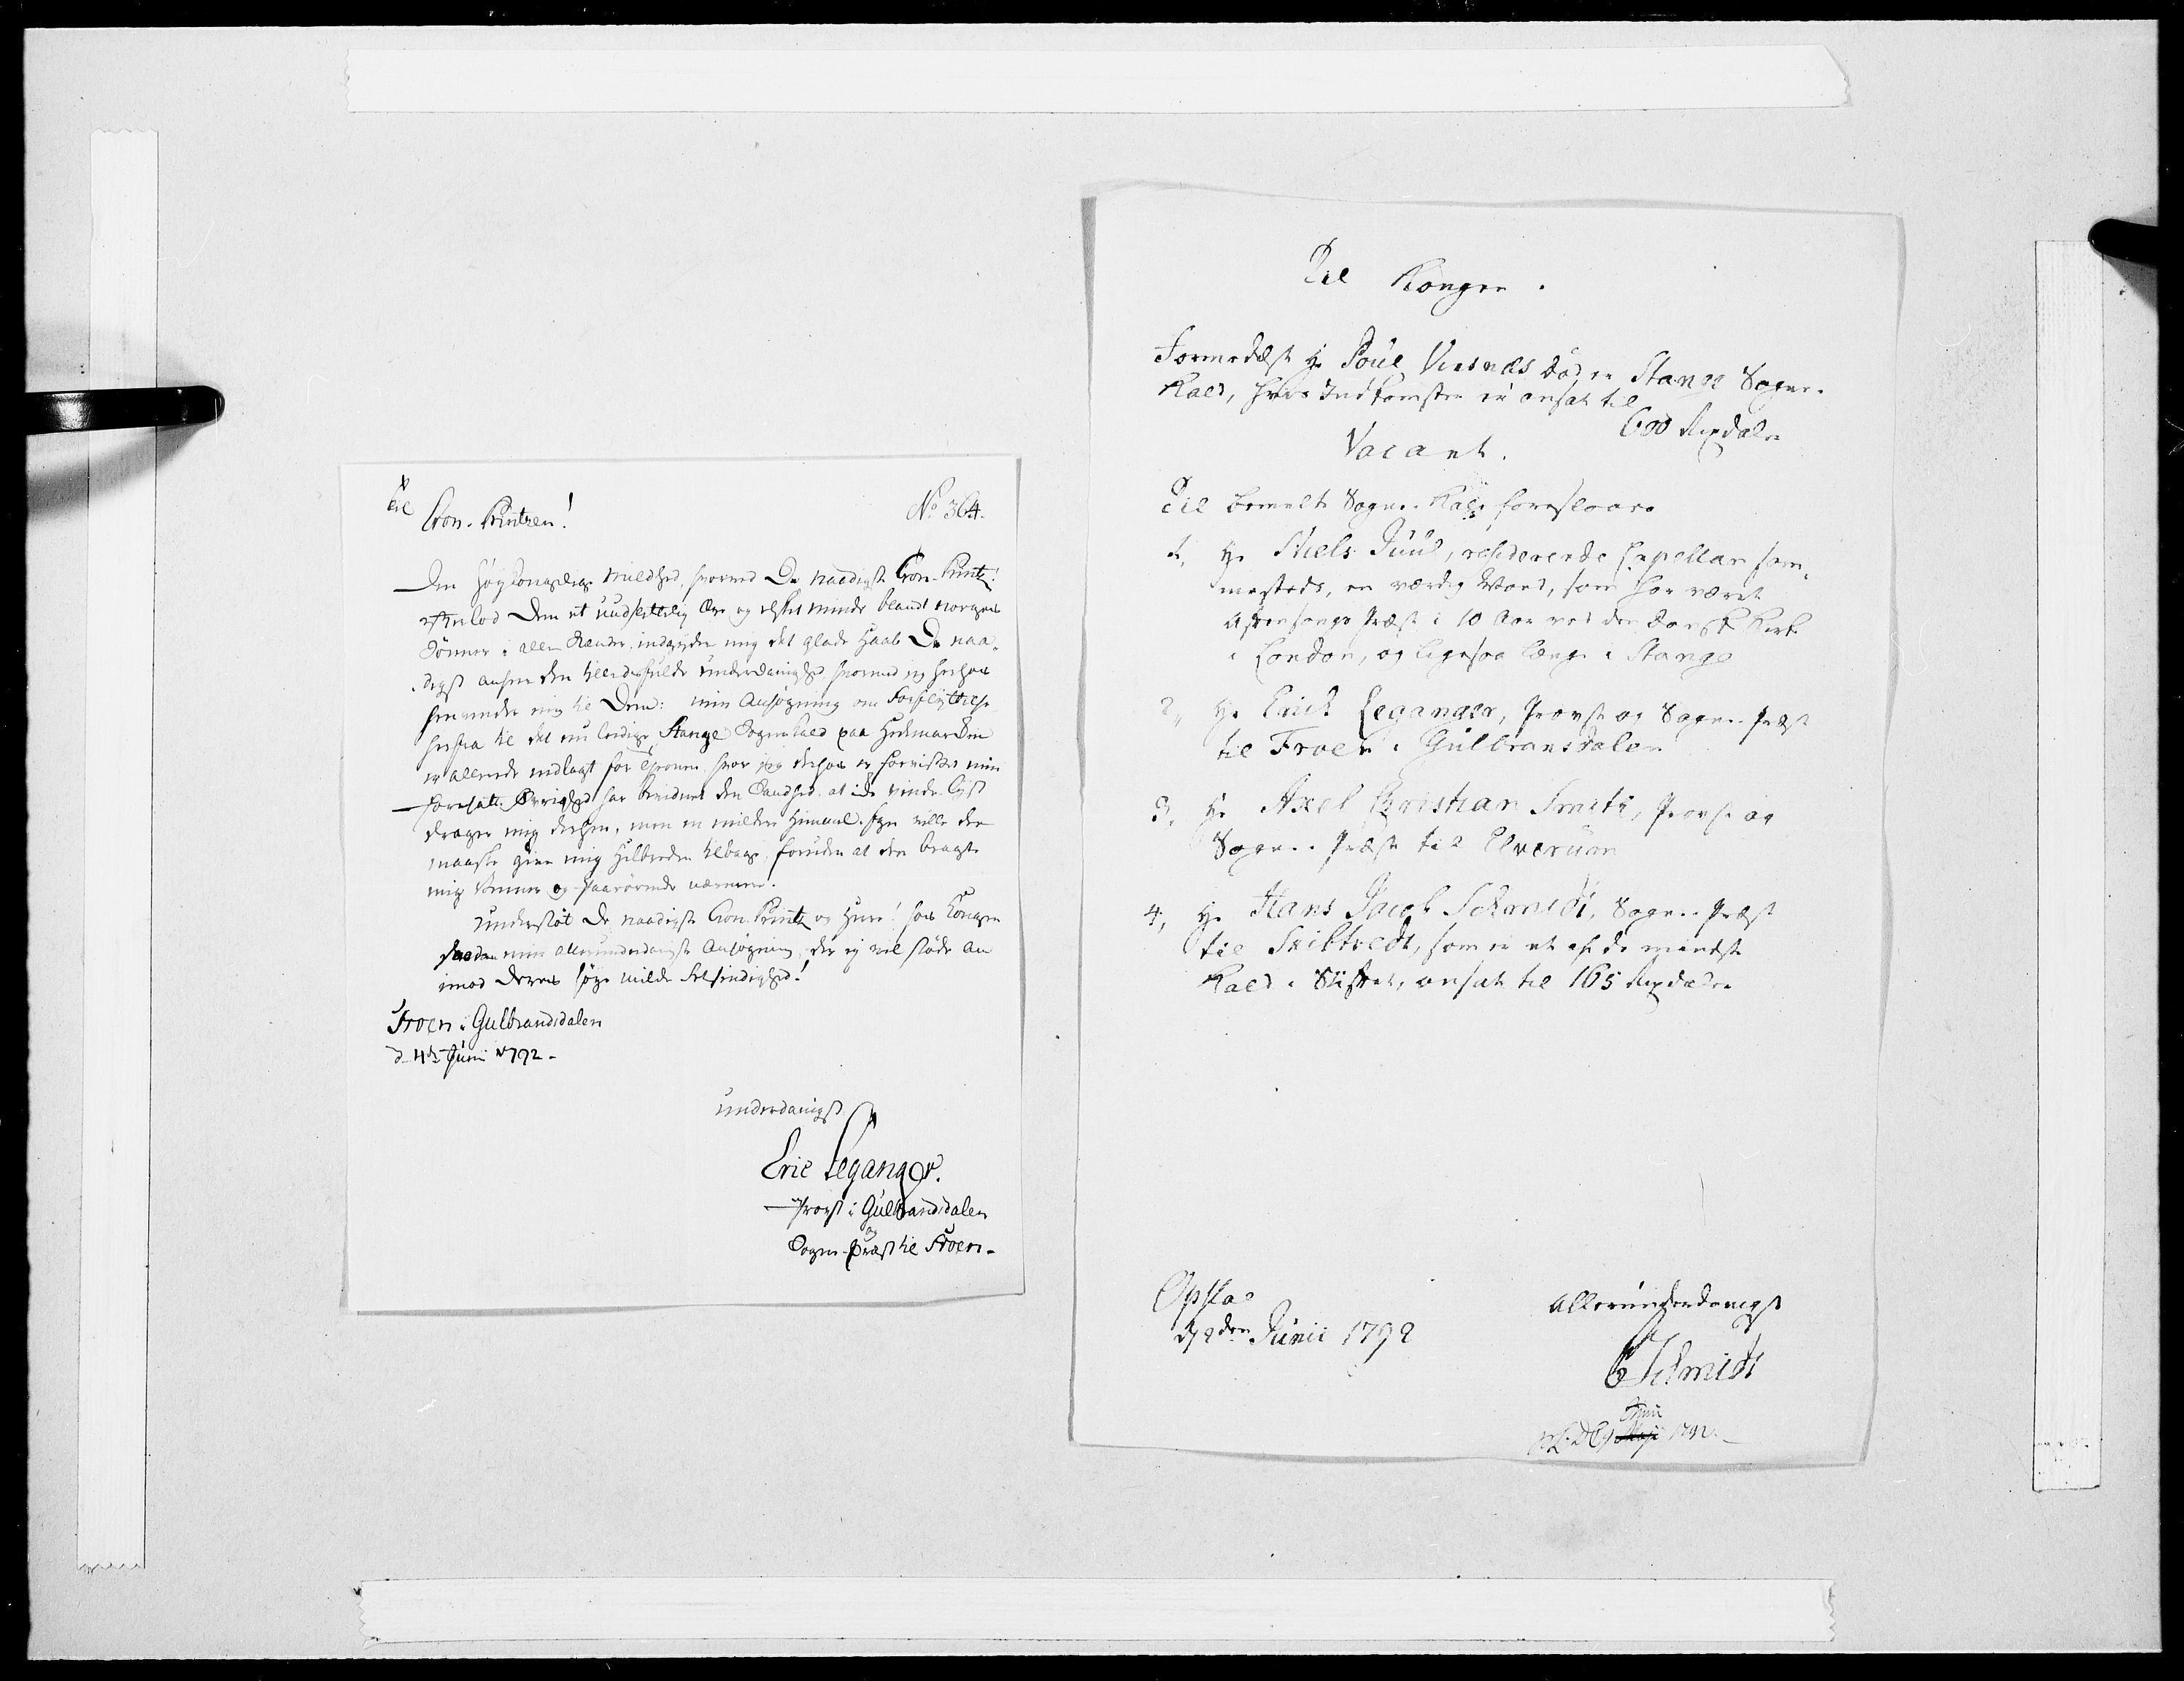 Til Cron-Printzen!
No 364.
Den høykongelige mildhed, hvormed De naadigste Cron-Printz!
efterlod Dem et uudslettelig Ære og elsket minde blandt norges
Sønner i allen Stænder, indgyder mig det glade Haab De naa-
digst anseer den tillidsfulde underdanighed hvormed jeg herhos
henvender mig til Dem: min Ansøgning om Forflyttelse
herfra til det nu ledige Stange Sognekald paa Hedemarken
er allerede indlagt for Thronen hvor jeg derhos er forvisset min
foresatte Øvrighed har bevidnet den Sandhed at ikke vinde lyst
drager mig derhen, men en mildere Himmel-Egn ville der
maaske give mig Helbreden tilbage, foruden at den bragte
mig Venner og Paarørende nærmere.
Understøt De naadigste Cron-Printz og Herre! hos Kongen
Faderen min allerunderdanigste Ansøgning, der ej vil støde an
imod Deres høye milde Retsindighed!
Froen i Gulbrandsdalen
d 4de Juni 1792-
underdanigst
Eric Leganger.
Provst i Gulbrandsdalen
og
Sogne-Præst til Froen-
Til Kongen.
Formedelst Hr Poul Viesnæs død er Stange Sogne-
Kald, hvis Indkomster er ansat til
600 Rixdaler
Vacant.
Til bemelte Sogne-Kald foreslaaes
1, Hr Niels Juul, residerende Capellan sam-
mesteds, en værdig Mand, som har været
Aftensangs Præst i 10 Aar ved den danske Kirke
i London, og ligesaa længe i Stange
2, Hr Erich Leganger, Provst og Sogne-Præst
til Froen i Gulbransdalen
3, Hr Axel Christian Smith, Provst og
Sogne-Præst til Elverum
4, Hr Hans Jacob Schmidt, Sogne-Præst
til Skibtvedt, som er et af de mindste
Kald i Stiftet, ansat til 165 Rixdaler
Opsloe
d 2den Junii 1792
Allerunderdanigst
C Schmidt
Junii
d 9 Maji 1792.